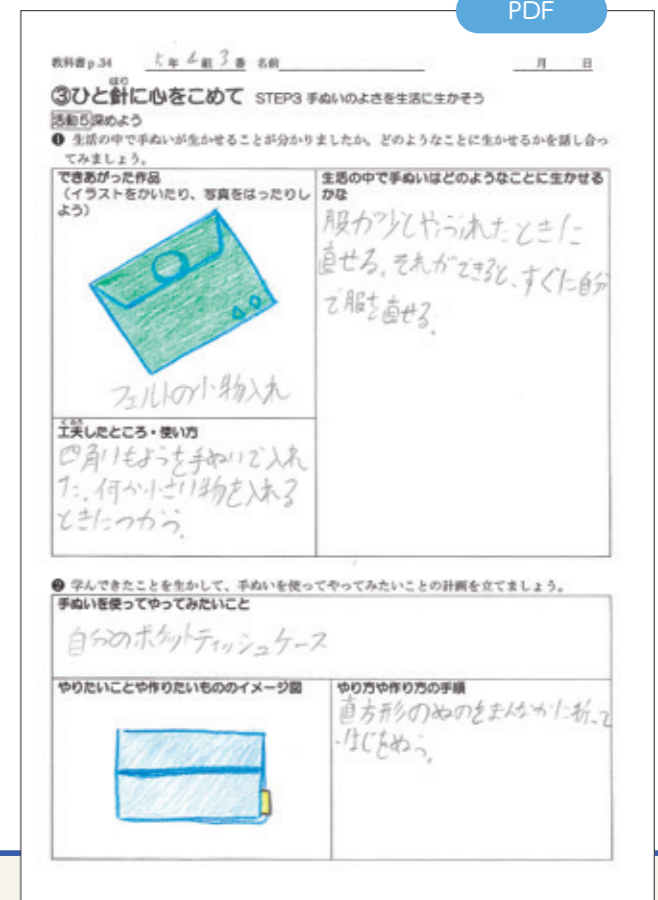 PDF
教科書p.34 5年4組3番 名前 月 日
③ひと針に心をこめて STEP3 手ぬいのよさを生活に生かそう
はり
活動5深めよう
❶ 生活の中で手ぬいが生かせることが分かりましたか。どのようなことに生かせるかを話し合っ
てみましょう。
できあがった作品
(イラストをかいたり、写真をはったりし
よう)
フェルトの小物入れ
くふう
工夫したところ・使い方
四角いもようを手ぬいで入れ
た。何か小さい物を入れる
ときにつかう。
生活の中で手ぬいはどのようなことに生かせる
かな
服が少しやぶれたときに
直せる。それができると、すぐに自分
で服を直せる。
❷ 学んできたことを生かして、手ぬいを使ってやってみたいことの計画を立てましょう。
手ぬいを使ってやってみたいこと
自分のポケットティッシュケース
やりたいことや作りたいもののイメージ図
やり方や作り方の手順
直方形のぬのをまんなかに折って
はじをぬう。